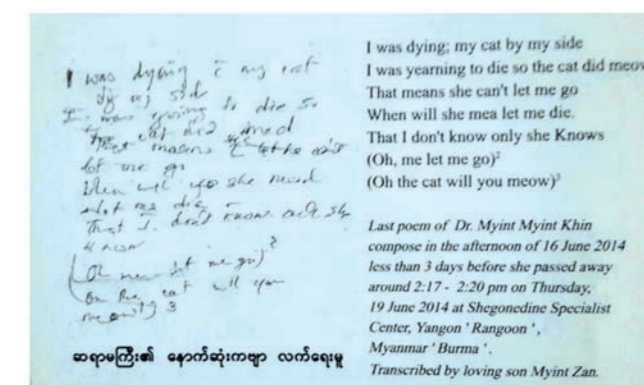 I was dying c̄ my cat
by my side
I was going to die so
the cat did meow
That means let me go
When will she
let me die
That I don't know only she
Know
(Oh me let me go)²
(Oh the cat will you
meow) 3
ဆရာမကြီး၏ နောက်ဆုံးကဗျာ လက်ရေးမူ
I was dying; my cat by my side
I was yearning to die so the cat did meow
That means she can't let me go
When will she mea let me die.
That I don't know only she Knows
(Oh, me let me go)²
(Oh the cat will you meow)³
Last poem of Dr. Myint Myint Khin
compose in the afternoon of 16 June 2014
less than 3 days before she passed away
around 2:17 - 2:20 pm on Thursday,
19 June 2014 at Shegonedine Specialist
Center, Yangon ' Rangoon ' ,
Myanmar ' Burma ' .
Transcribed by loving son Myint Zan.